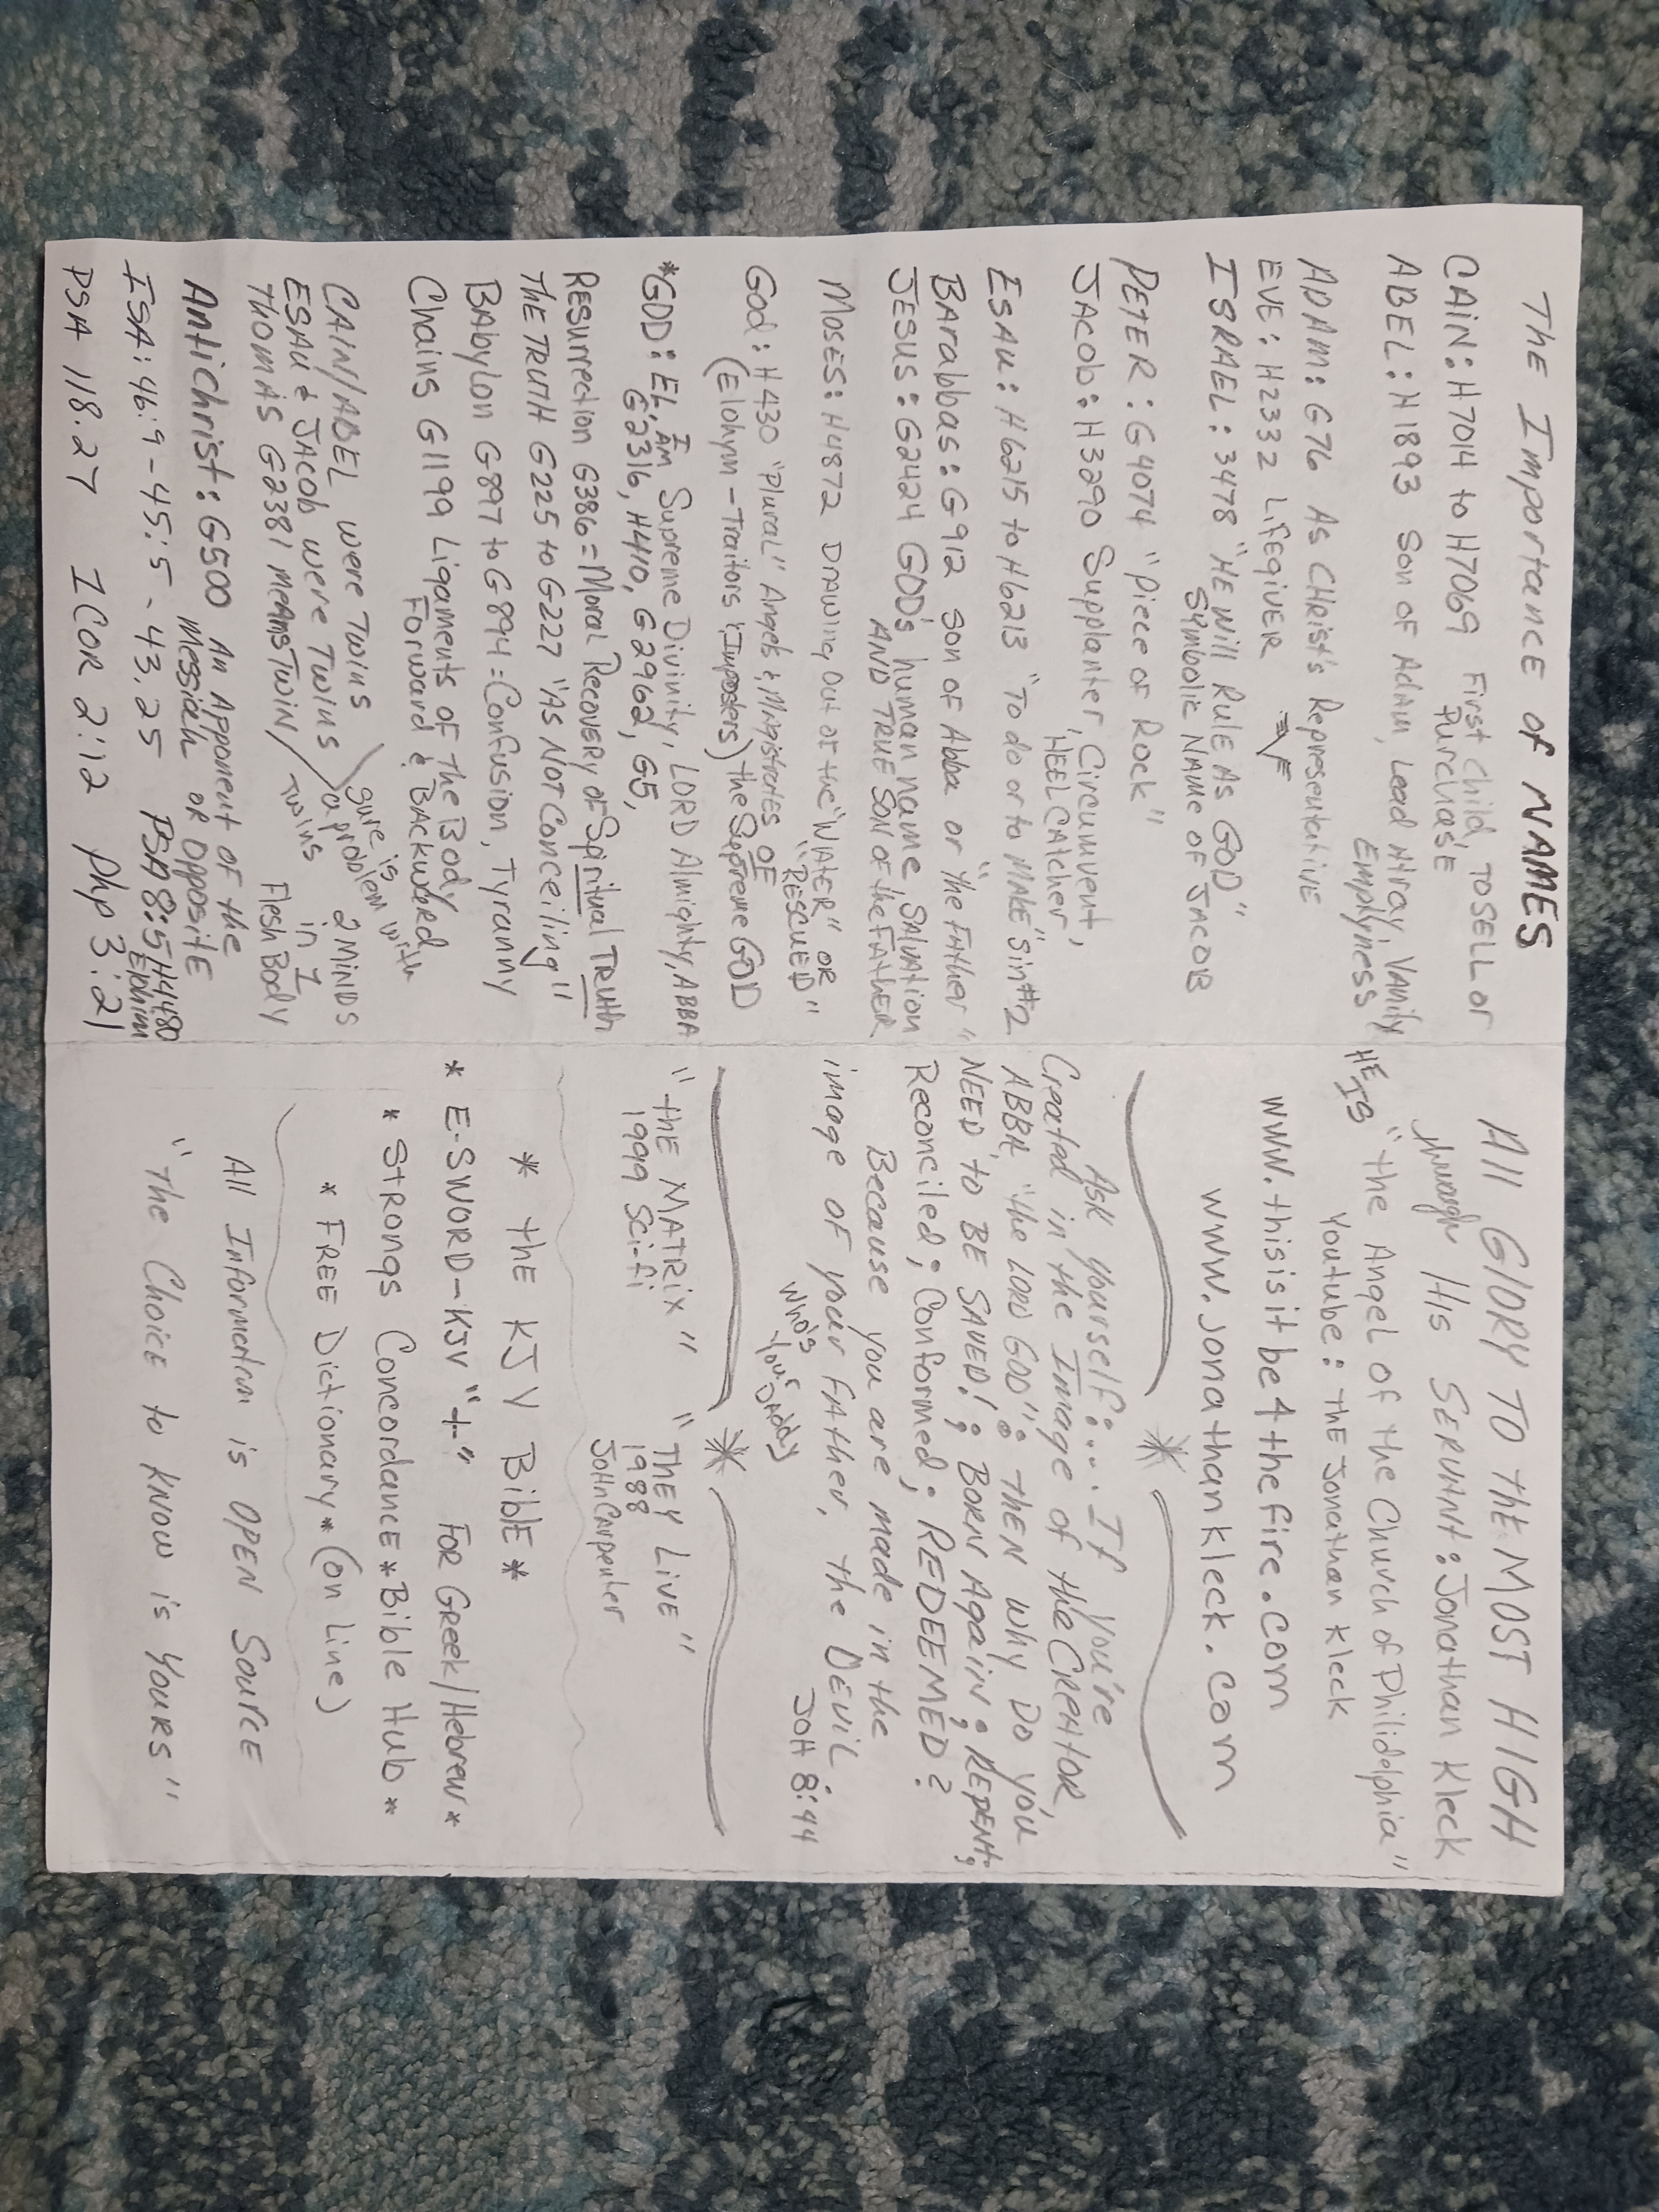 THE Importance of NAMES
CAIN: H7014 to H7069 First child, TO SELL or
Purchase
ABEL: H1893 Son of Adam, Lead Atray, Vanily
Emplyness
ADAM: G76 AS CHRIST'S Representative
EVE: H2332 LifeGIVER
ISRAEL: 3478 "HE Will Rule AS GOD"
Symbolic NAME of JACOB
PETER: G4074 "Piece of Rock"
JACOb: H3290 Supplanter, Circumvent,
HEEL CAtcher
ESAU: H6215 to H6213 "To do or to MAKE" sin#2
BArabbas: G912 Son of Abba or "the FAther"
JESUS: G2424 GOD's human name, Salvation
AND TRUE SON OF the FATHER
MOSES: H4872 DrAwing Out of the "WATER" OR
"RESCUED"
God: H430 "Plural" Angels & Magistrates OF
(Elohym-Traitors & Imposters) the Supreme GOD
*GOD: EL, I Am Supreme Divinity, LORD Almighty, ABBA
G2316, H410, G2962, G5,
RESurrection G386= Moral Recovery of Spiritual TRUth
THE TRUTH G225 to G227 "AS NOT Conceiling"
BAbylon G897 to G894=Confusion, Tyranny
Chains G1199 Ligaments of the Body
Forward & BACKward
CAIN/ABEL were Twins
ESAU & JAcob were Twins
sure is a problem with
THOMAS G2381 meAns TWIN/Twins
2 MINDS
in 1
Flesh Body
Antichrist: G500 An Apponent of the
Messiah or Opposite
ISA: 46:9-45:5-43.25 PSA 8:5/H4480
Elohim
PSA 118.27 1COR 2:12 Php 3:21
All GlORY TO the MOST HIGH
through His SERVANT: Jonathan Kleck
HE IS "the Angel of the Church of Philidelphia"
Youtube: THE Jonathan Kleck
www.thisitbe4thefire.com
www.jonathankleck.com
Ask yourself:... If you're
Created in the Image of the CREATOR,
ABBA, "the LORD GOD": THEN Why Do You
NEED to BE SAVED!; BORN Again; REPENT;
Reconciled; Conformed; REDEEMED?
Because you are made in the
image of your FAther, the DEVIL
Who's Your Daddy
JOH 8:44
"the MATRIX"
1999 Sci-fi
"THEY LIVE"
1988
JOHN CArpenter
* the KJV BiblE *
* E-SWORD-KJV "+" FOR GREEK/Hebrew *
* STRONGS Concordance * Bible Hub *
* FREE Dictionary * (on line)
All Information is OPEN Source
"The ChoicE to KNOW is YOURS"